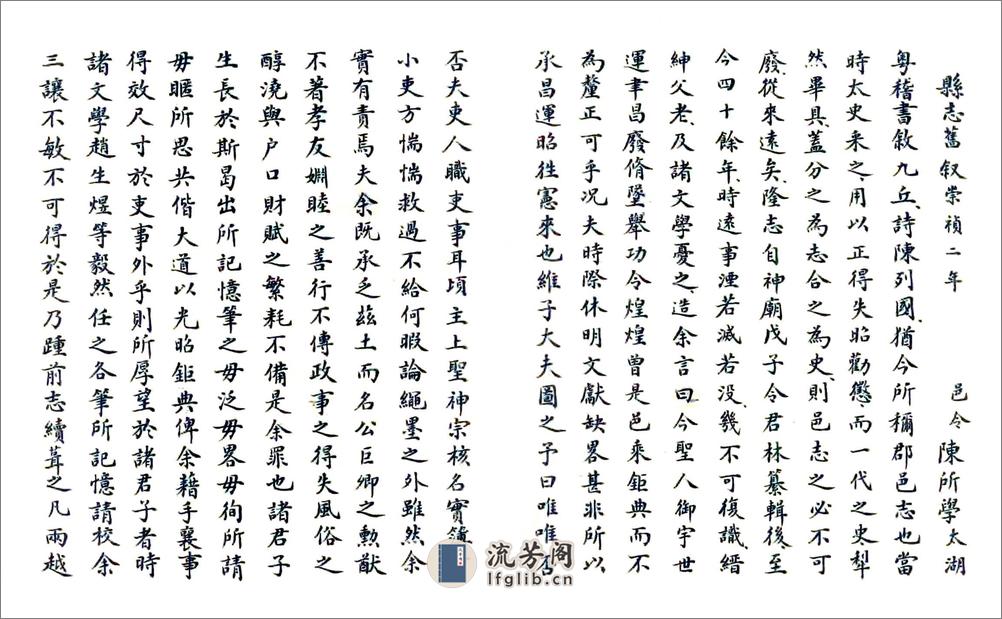 縣志舊叙崇禎二年 邑令陳所學太湖
粤稽書敘九丘詩陳列國猶今所稱郡邑志也當
時太史采之用以正得失昭勸懲而一代之史犁
然畢具蓋分之為志合之為史則邑志之必不可
廢從來遠矣隆志自神廟戊子令君林纂輯後至
今四十餘年時遠事湮若滅若没幾不可復識縉
紳父老及諸文學憂之造余言曰今聖人御宇世
運聿昌廢脩墜舉功令煌煌曽是邑乘鉅典而不
為釐正可乎况夫時際休明文獻缺畧甚非所以
承昌運昭徃憲來也維子大夫圖之予曰唯唯否
否夫吏人職吏事耳頃主上聖神宗核名實簿
小吏方惴惴救過不給何暇論繩墨之外雖然余
實有責焉夫余既承乏兹土而名公巨卿之勲猷
不著孝友婣睦之善行不傳政事之得失風俗之
醇澆與户口財賦之繁耗不備是余罪也諸君子
生長於斯曷出所記憶筆之毋泛毋畧毋徇所請
毋匿所思共偕大道以光昭鉅典俾余藉手襄事
得效尺寸於吏事外乎則所厚望於諸君子者時
諸文學趙生煜等毅然任之各筆所記憶請校余
三讓不敏不可得於是乃踵前志續葺之凡兩越
流芳阁
lfglib.cn